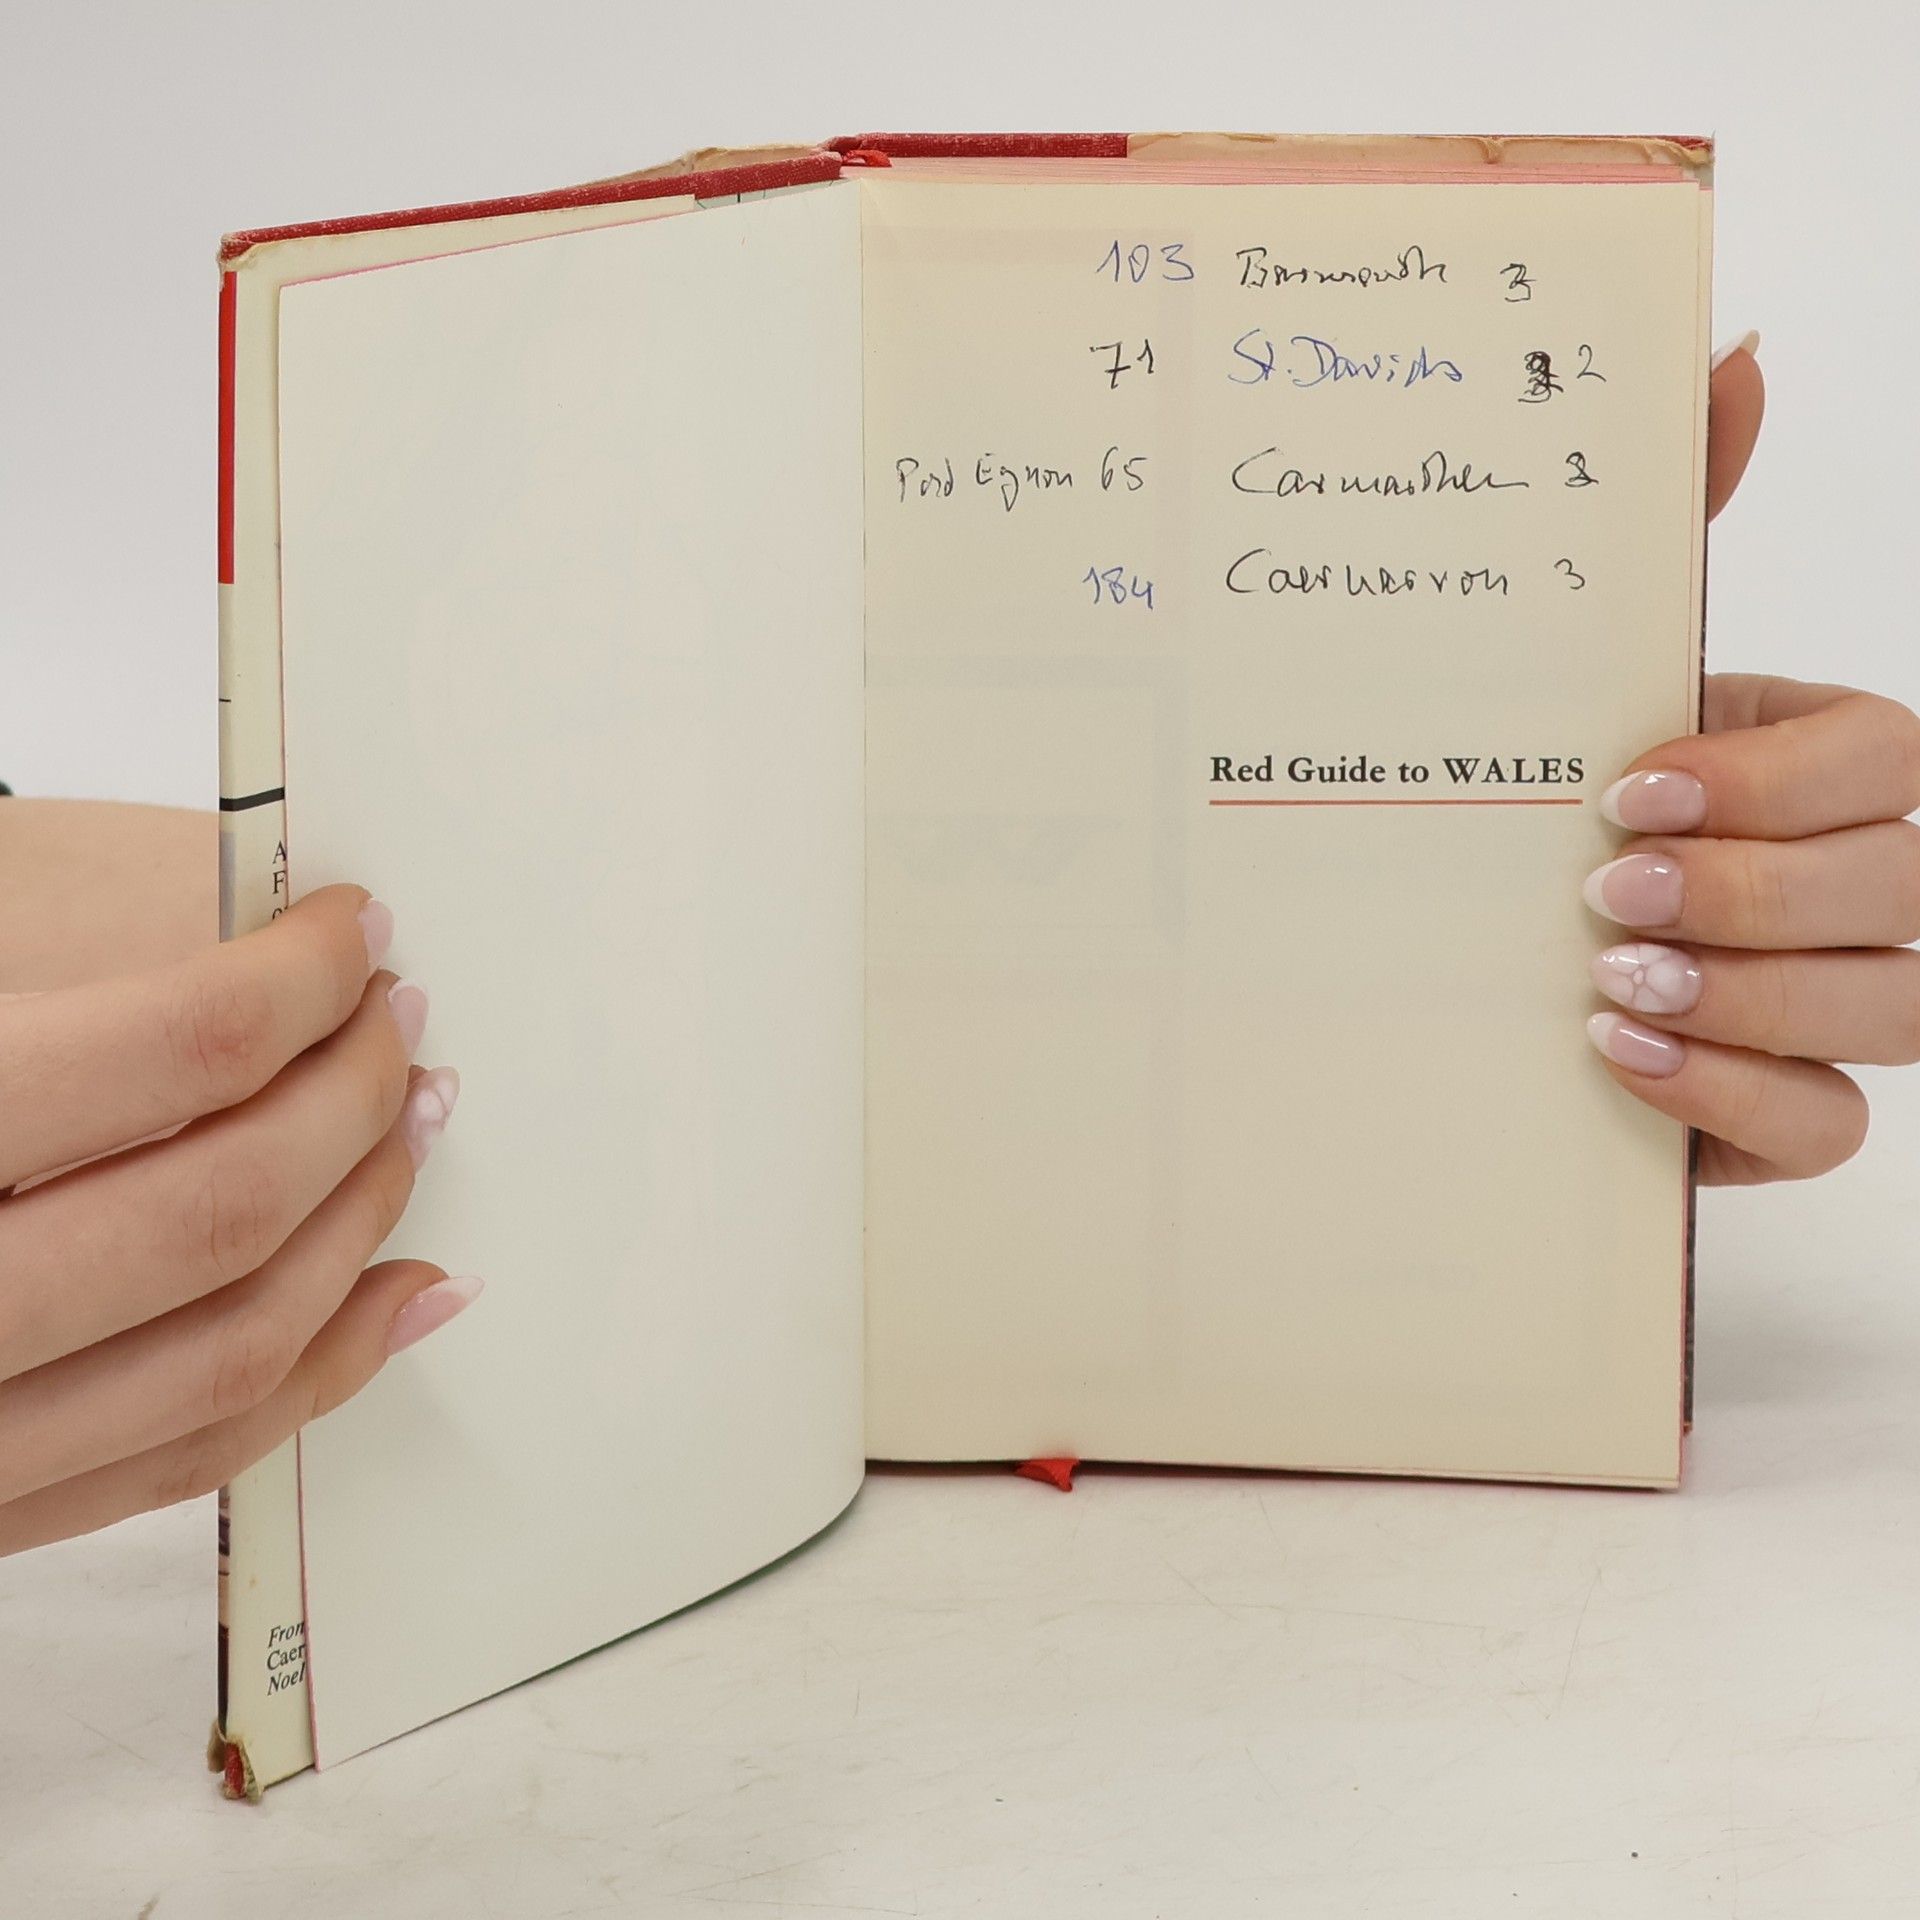 A
F
Fron
Caer
Noel
103 Barmouth 3
71 St. Davids 2
Port Eynon 65 Carmarthen 3
184 Caernarvon 3
Red Guide to WALES